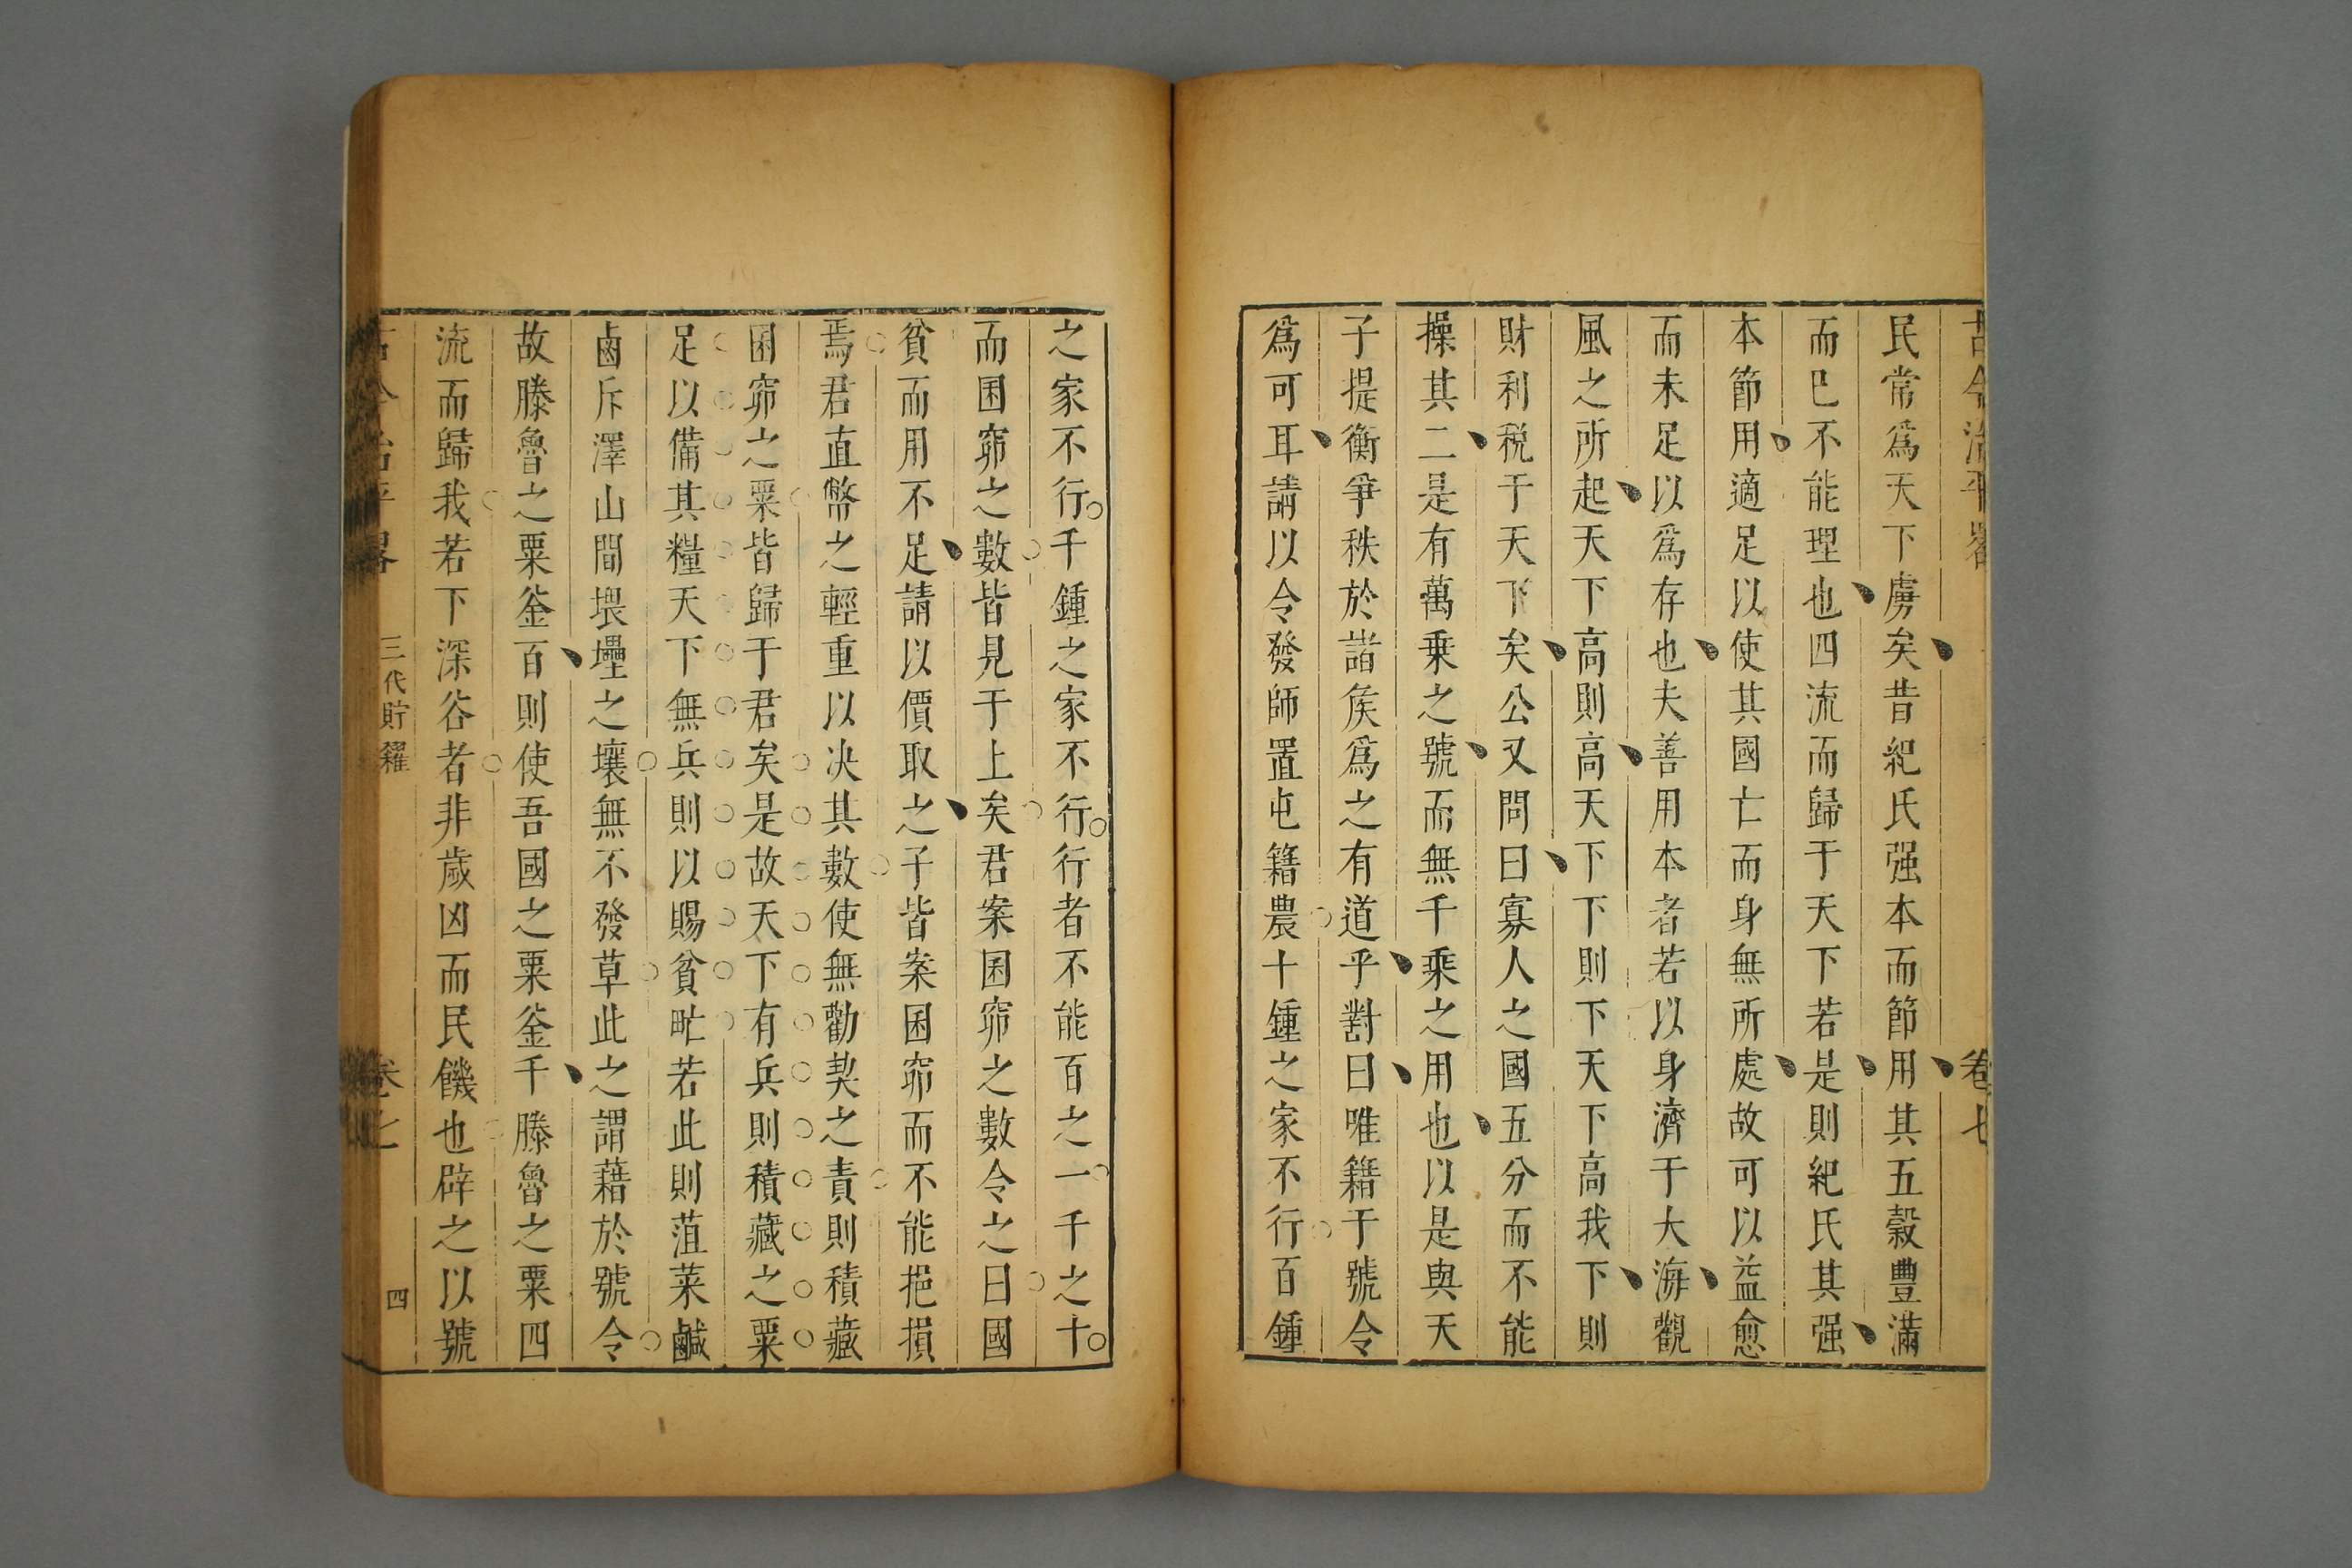 古今治平畧 卷七
民常爲天下虜矣昔紀氏强本而節用其五穀豐滿
而巳不能理也四流而歸于天下若是則紀氏其强
本節用適足以使其國亡而身無所處故可以益愈
而未足以爲存也夫善用本者若以身濟于大海觀
風之所起天下高則高天下下則下天下高我下則
財利税于天下矣公又問曰寡人之國五分而不能
操其二是有萬乗之號而無千乘之用也以是與天
子提衡爭秩於諸矦爲之有道乎對曰唯籍于號令
爲可耳請以令發師置屯籍農十鍾之家不行百鍾
之家不行千鍾之家不行行者不能百之一千之十
而囷窌之數皆見于上矣君案囷窌之數令之曰國
貧而用不足請以價取之子皆案囷窌而不能挹損
焉君直幣之輕重以决其數使無勸契之責則積藏
囷窌之粟皆歸于君矣是故天下有兵則積藏之粟
足以備其糧天下無兵則以賜貧甿若此則菹菜鹹
鹵斥澤山間㟪壘之壤無不發草此之謂藉於號令
故滕魯之粟釜百則使吾國之粟釜千滕魯之粟四
流而歸我若下深谷者非歲凶而民饑也辟之以號
古今治平畧 三代貯糴 卷七 四